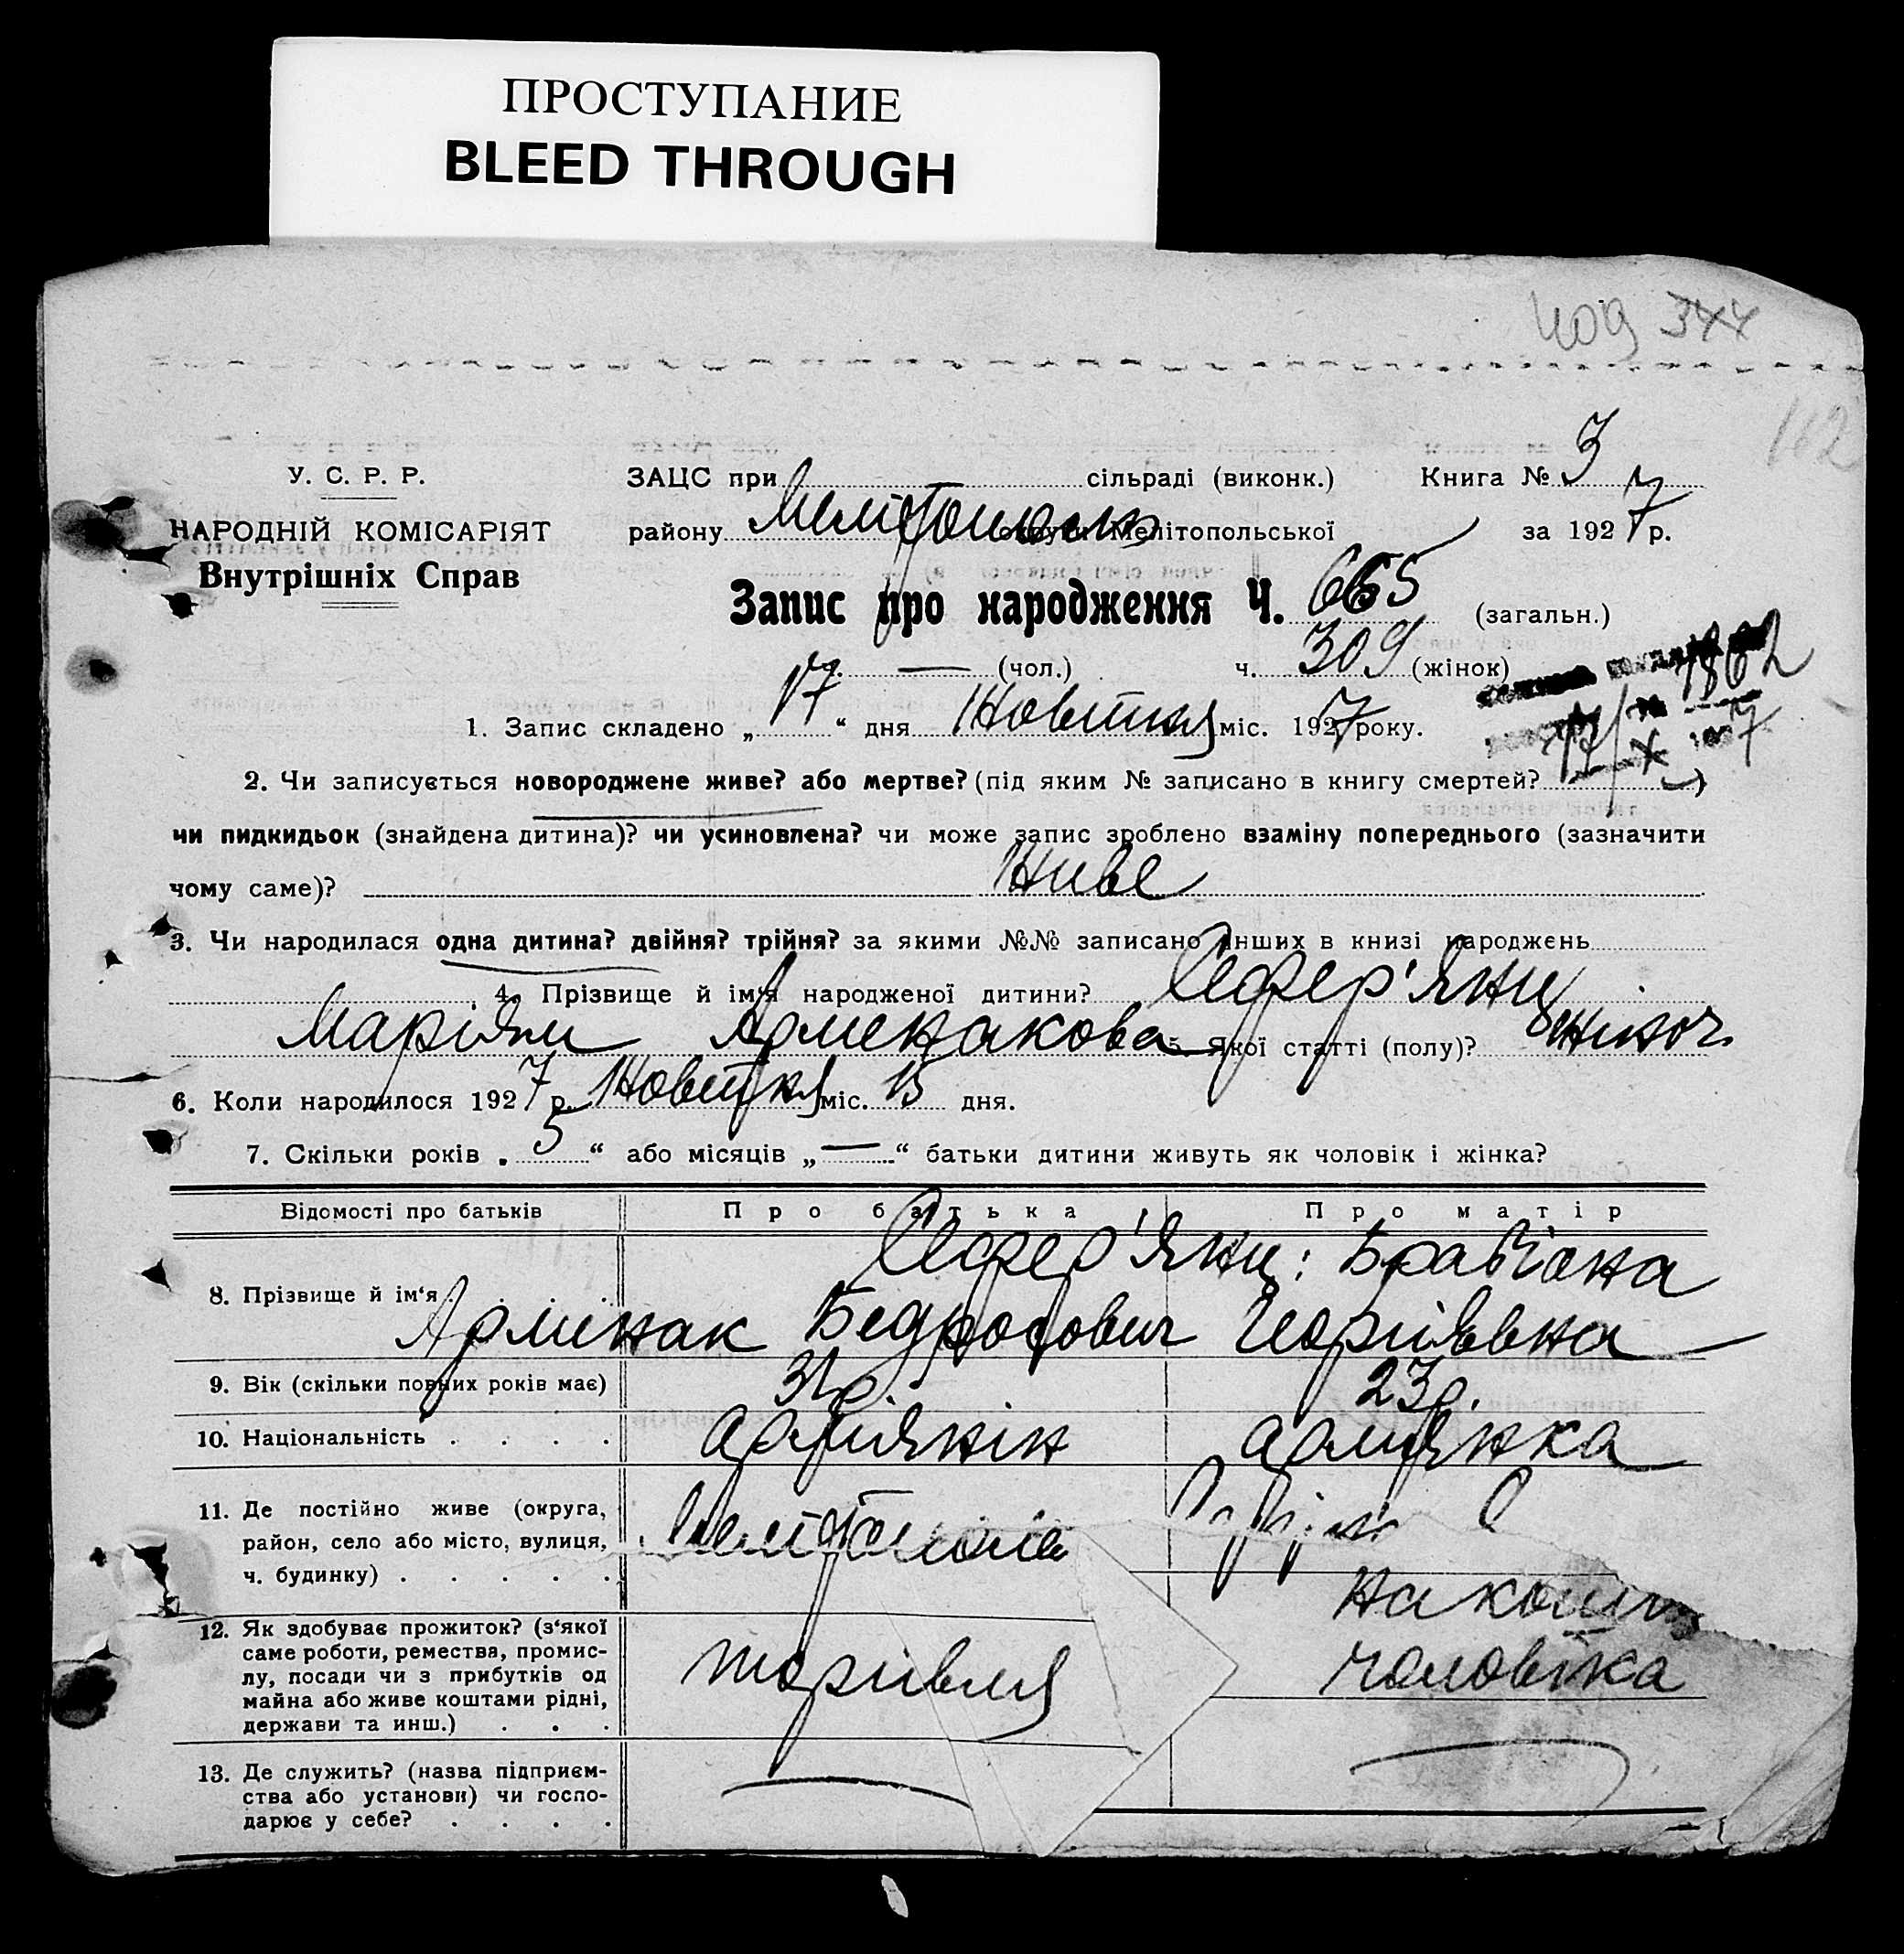 ПРОСТУПАНИЕ
BLEED THROUGH
409 344
162
У. С. Р. Р.
НАРОДНІЙ КОМІСАРІЯТ
Внутрішніх Справ
ЗАЦС при сільраді (виконк.) Книга № 3
району округи Мелітопольської за 1927 р.
Запис про народження Ч. 665 (загальн.)
ч. — (чол.) ч. 309 (жінок)
1. Запис складено „ 17 “ дня Жовтня міс. 1927 року.
2. Чи записується новороджене живе? або мертве? (під яким № записано в книгу смертей? )
чи пидкидьок (знайдена дитина)? чи усиновлена? чи може запис зроблено взаміну попереднього (зазначити
чому саме)? Живе
3. Чи народилася одна дитина? двійня? трійня? за якими №№ записано инших в книзі народжень
4. Прізвище й ім‘я народженої дитини? Сефер'янц
Арменакова 5. Якої статті (полу)? Жіноч.
6. Коли народилося 1927 р. Жовтня міс. 15 дня.
7. Скільки років „ 5 “ або місяців „ — “ батьки дитини живуть як чоловік і жінка?
Відомості про батьків Про батька Про матір
Сефер'янц:
8. Прізвище й ім‘я Арменак Бедросович
9. Вік (скільки повних років має) 31 р. 23 р.
10. Національність армянін армянка
11. Де постійно живе (округа,
район, село або місто, вулиця,
ч. будинку)
12. Як здобуває прожиток? (з‘якої
саме роботи, ремества, промис-
лу, посади чи з прибутків од
майна або живе коштами рідні,
держави та инш.)
торгівля
на кошти
чоловіка
13. Де служить? (назва підприєм-
ства або установи) чи госпо-
дарює у себе?